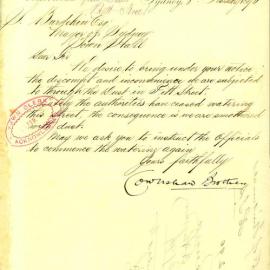 Sydney,
Esq
Mayor of Sydney
Town Hall
Dear Sir
We desire to bring under your notice
the discomfort and inconvenience we are subjected
to through the dust in Pitt Street.
Lately the authorities have ceased watering
this Street, the consequence is we are smothered
with dust.
May we ask you to instruct the Officials
to commence the watering again
Yours faithfully
Brothers
TOWN CLERK